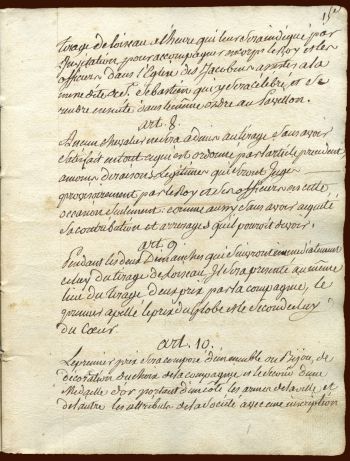 15e
tirage de loiseau a l'heure qui leur sera indiqué par
Invitation, pour accompagner en corps le Roy et les
officiers dans l'Eglise des Jacobins assister a la
messe de St. Sebastien qui y sera célébré et se
rendre ensuite dans le même ordre au pavillon.
art. 8.
Aucun chevalier ne sera admis au tirage sans avoir
satisfait en tout ce qui est ordonné par l'article précédent,
amoins de raisons légitimes qui seront jugées
provisoirement par le Roy et ses officiers en cette
occasion seulement; comme aussy sans avoir acquité
sa contribution et arrerages qu'il pourroit devoir.
art. 9
Pendant les deux Dimanches qui suivront immédiatement
celuy du tirage de loiseau, Il sera présenté au même
lieu du tirage deux prix par la compagnie, le
premier apellé le prix du Globe et le second celuy
du Cœur.
art. 10.
Le premier prix sera composé d'un meuble ou Bijou, de
décoration au choix de la compagnie et le second d'une
Medaille d'or portant d'un coté les armes de la ville et
de l'autre les attributs de la Société avec une inscription